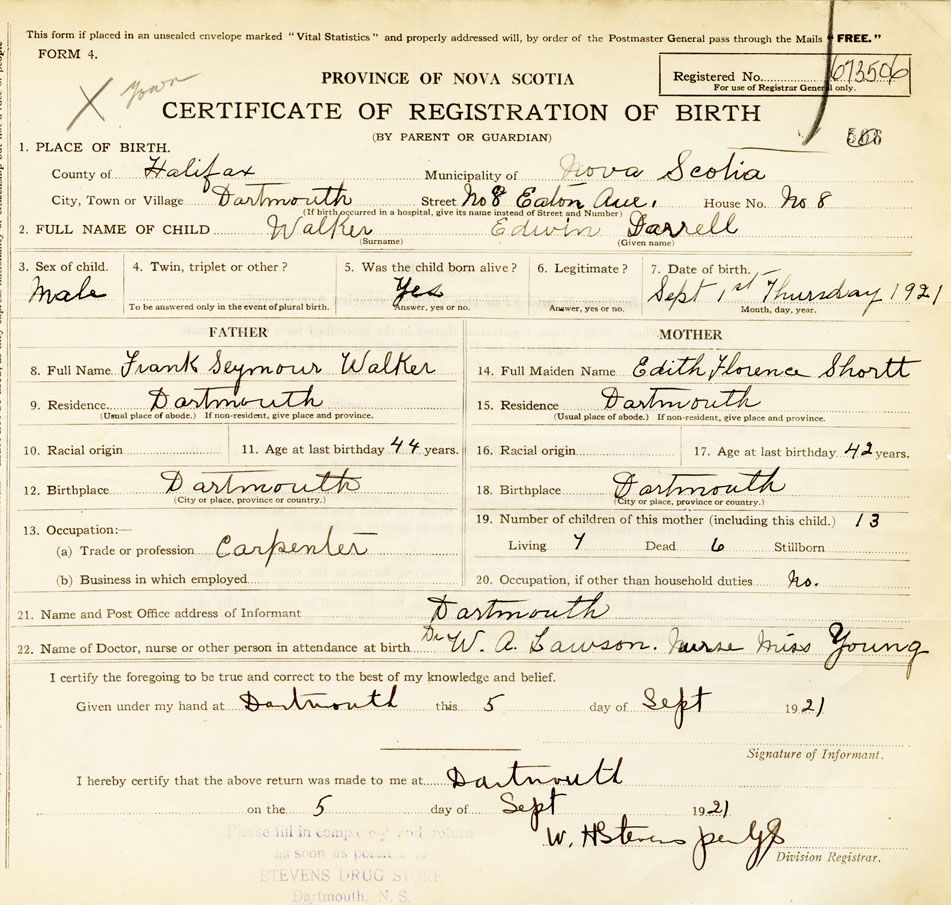 This form if placed in an unsealed envelope marked "Vital Statistics" and properly addressed will, by order of the Postmaster General pass through the Mails "FREE."
FORM 4.
PROVINCE OF NOVA SCOTIA
Registered No. 673506
For use of Registrar General only.
X Town
CERTIFICATE OF REGISTRATION OF BIRTH
(BY PARENT OR GUARDIAN)
1. PLACE OF BIRTH.
County of Halifax Municipality of Nova Scotia
City, Town or Village Dartmouth Street No 8 Eaton Ave. House No. No 8
(If birth occurred in a hospital, give its name instead of Street and Number)
2. FULL NAME OF CHILD Walker Edwin Darrell
(Surname) (Given name)
3. Sex of child. 4. Twin, triplet or other? 5. Was the child born alive? 6. Legitimate? 7. Date of birth.
Male Yes Sept 1st Thursday 1921
To be answered only in the event of plural birth. Answer, yes or no. Answer, yes or no. Month, day, year.
FATHER MOTHER
8. Full Name Frank Seymour Walker 14. Full Maiden Name Edith Florence Shortt
9. Residence Dartmouth 15. Residence Dartmouth
(Usual place of abode.) If non-resident, give place and province. (Usual place of abode.) If non-resident, give place and province.
10. Racial origin 11. Age at last birthday 44 years. 16. Racial origin 17. Age at last birthday 42 years.
12. Birthplace Dartmouth 18. Birthplace Dartmouth
(City or place, province or country.) (City or place, province or country.)
13. Occupation:— 19. Number of children of this mother (including this child.) 13
(a) Trade or profession Carpenter Living 7 Dead 6 Stillborn
(b) Business in which employed 20. Occupation, if other than household duties No.
21. Name and Post Office address of Informant Dartmouth
22. Name of Doctor, nurse or other person in attendance at birth Dr W. A. Lawson. Nurse Miss Young
I certify the foregoing to be true and correct to the best of my knowledge and belief.
Given under my hand at Dartmouth this 5 day of Sept 1921
Signature of Informant.
I hereby certify that the above return was made to me at Dartmouth
on the 5 day of Sept 1921
W. H Stevens per
Division Registrar.
Please fill in and return
as soon as possible to
STEVENS DRUG STORE
Dartmouth, N. S.